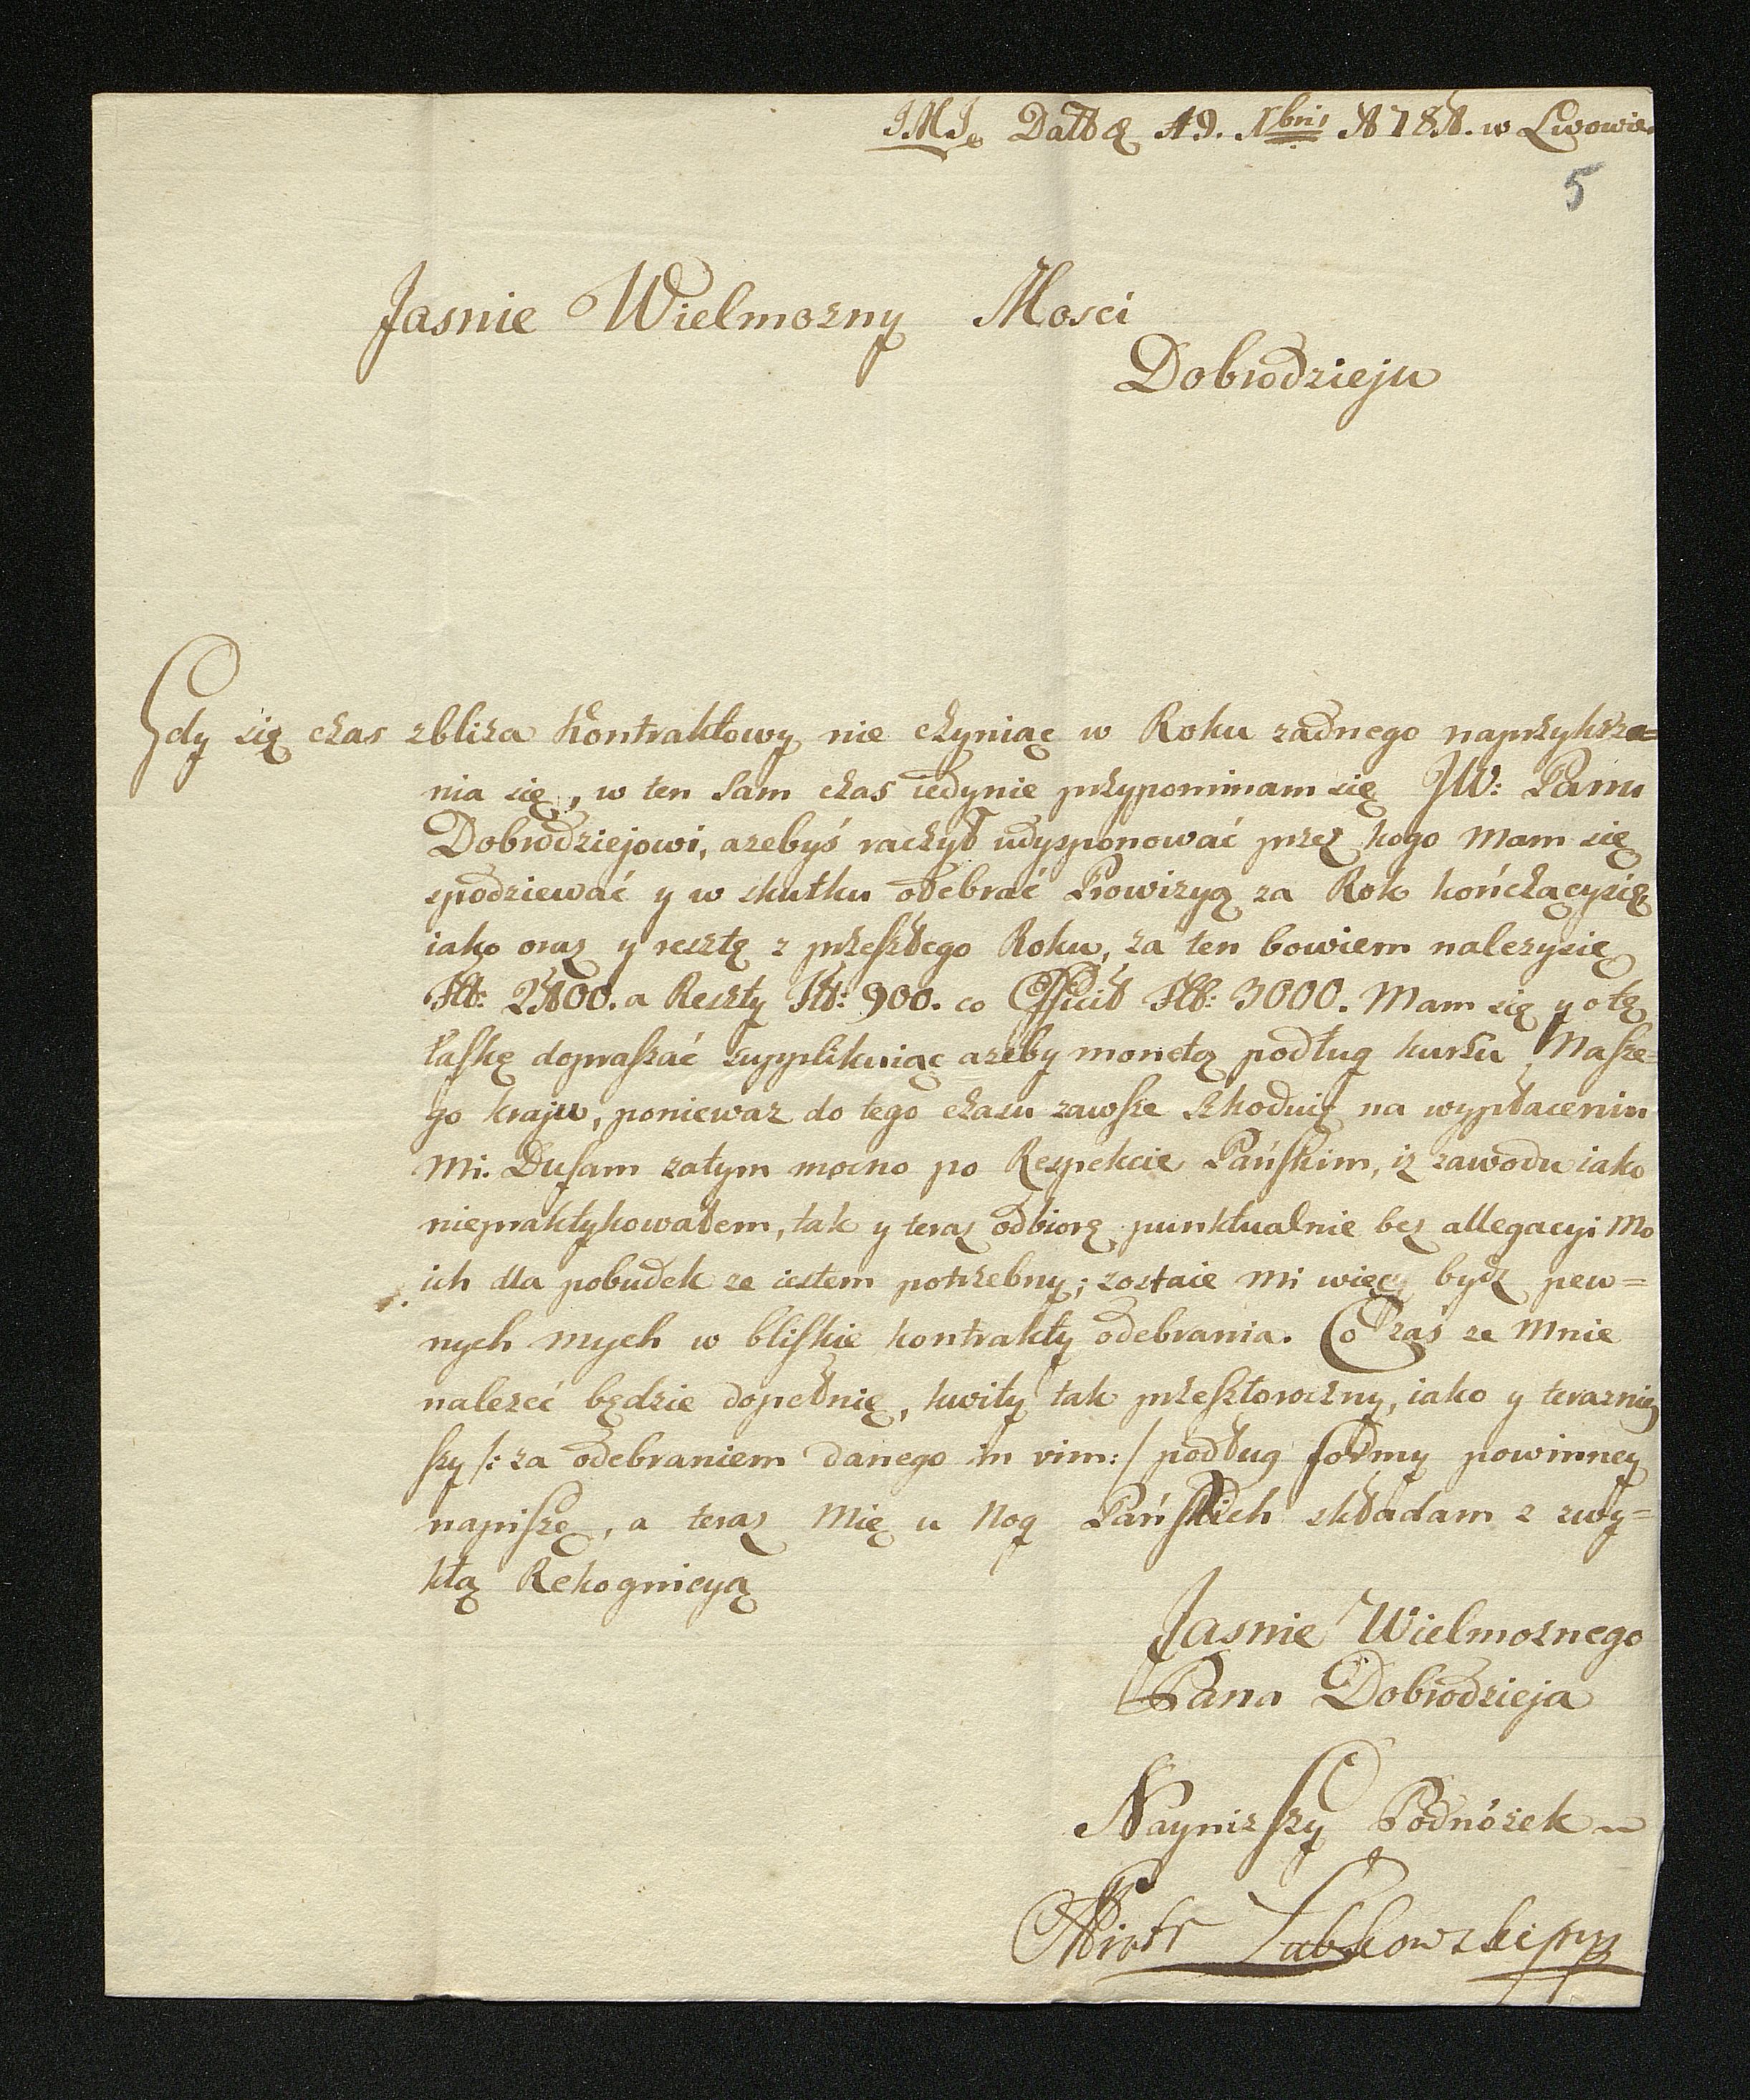 J.M.J. Datt æ 19. Xbris 1781. w Lwowie
5
Jasnie Wielmozny Mosci
Dobrodzieju
Gdy się czas zbliza Kontraktowy nie czyniąc w Roku zadnego naprzykrze=
nia się, w ten sam czas iedynie przypominam się JW: Panu
Dobrodziejowi, azebyś raczył udysponować przez kogo Mam się
spodziewać y w skutku odebrać Prowizyą za Rok kończącysię,
iako oraz y resztę z przeszłego Roku, za ten bowiem nalezysię
Złł: 2100. a Reszty Złł: 900. co Efficit Złł: 3000. Mam się y o tę
łaskę dopraszać supplikuiąc azeby monetą podług kursu Nasze=
go kraju, poniewaz do tego czasu zawsze szkoduię na wypłaceniu
Mi. Dufam zatym mocno po Respekcie Pańskim, iz zawodu iako
niepraktykowałem, tak y teraz odbiorę punktualnie bez allegacyi Mo
ich dla pobudek ze iestem potrzebny; zostaie Mi więcy bydz pew=
nych mych w bliskie kontrakty odebrania. Co zaś ze Mnie
nalezeć będzie dopełnię, kwity tak przeszłoroczny, iako y terazniey
szy /: za odebraniem danego in vim :/ podług formy powinney
napiszę, a teraz Mię u Nog Pańskich składam z zwy=
kłą Rekognicyą
Jasnie Wielmoznego
Pana Dobrodzieja
Nayniszszy Podnózek
Piotr Łubkowski mpp